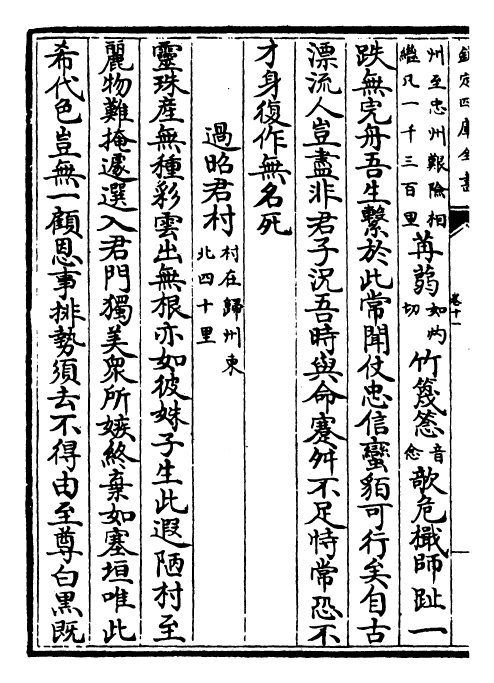 欽定四庫全書
卷十一
州至忠州艱險相
繼凡一千三百里
苒蒻
如灼
切
竹篾䉬
音
念
欹危檝師趾一
跌無完舟吾生繫於此常聞仗忠信蠻貊可行矣自古
漂流人豈盡非君子況吾時與命蹇舛不足恃常恐不
才身復作無名死
過昭君村
村在歸州東
北四十里
靈珠産無種彩雲出無根亦如彼姝子生此遐陋村至
麗物難掩遽選入君門獨美衆所嫉終棄如塞垣唯此
希代色豈無一顧恩事排勢須去不得由至尊白黑既